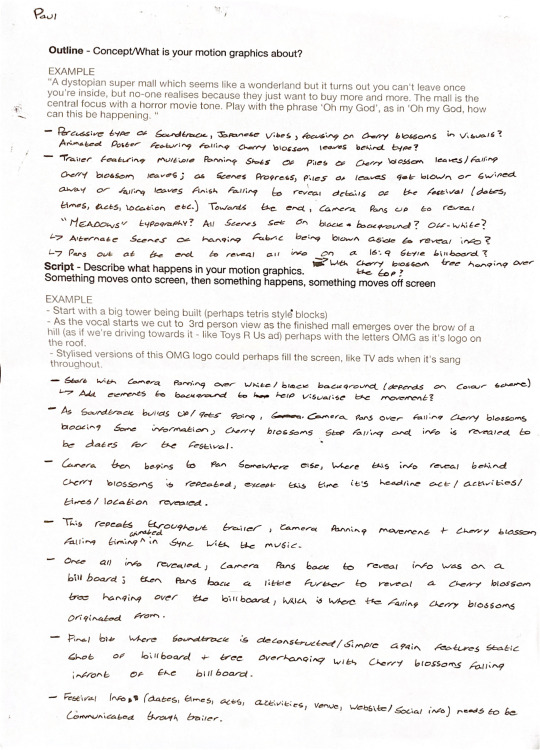 Paul
Outline - Concept/What is your motion graphics about?
EXAMPLE
"A dystopian super mall which seems like a wonderland but it turns out you can't leave once
you're inside, but no-one realises because they just want to buy more and more. The mall is the
central focus with a horror movie tone. Play with the phrase 'Oh my God', as in 'Oh my God, how
can this be happening. "
- Percussive type of Soundtrack, Japanese Vibes, focusing on Cherry blossoms in Visuals?
Animated Poster featuring falling Cherry blossom leaves behind type?
- Trailer featuring multiple Panning Shots of Piles of Cherry blossom leaves/falling
Cherry blossom leaves; as Scenes Progress, Piles of leaves get blown or swiped
away or falling leaves finish falling to reveal details of the festival (dates,
times, acts, location etc.) Towards the end, Camera Pans up to reveal
"MEADOWS" typography? All Scenes set on black background? Off-white?
↳ Alternate Scenes of hanging fabric being blown aside to reveal info?
↳ Pans out at the end to reveal all info on a 16:9 Style billboard?
With Cherry blossom tree hanging over
the top?
Script - Describe what happens in your motion graphics.
Something moves onto screen, then something happens, something moves off screen
EXAMPLE
- Start with a big tower being built (perhaps tetris style blocks)
- As the vocal starts we cut to 3rd person view as the finished mall emerges over the brow of a
hill (as if we're driving towards it - like Toys R Us ad) perhaps with the letters OMG as it's logo on
the roof.
- Stylised versions of this OMG logo could perhaps fill the screen, like TV ads when it's sang
throughout.
- Start with Camera Panning over White/black background (depends on Colour scheme)
↳ Add elements to background to help Visualise the movement?
- As Soundtrack builds up/gets going, Camera Pans over falling Cherry blossoms
blocking Some information; Cherry blossoms Stop falling and info is revealed to
be dates for the festival.
- Camera then begins to Pan Somewhere else, where this info reveal behind
Cherry blossoms is repeated, except this time it's headline act/activities/
times/location revealed.
- This repeats throughout trailer, Camera Panning movement + Cherry blossom
falling timing in Sync with the music.
- Once all info revealed, Camera Pans back to reveal info was on a
billboard; then Pans back a little further to reveal a Cherry blossom
tree hanging over the billboard, which is where the falling Cherry blossoms
Originated from.
- Final bit where Soundtrack is deconstructed/Simple again features Static
Shot of billboard + tree overhanging with Cherry blossoms falling
infront of the billboard.
- Festival Info, (dates, times, acts, activities, venue, website/Social info) needs to be
Communicated through trailer.